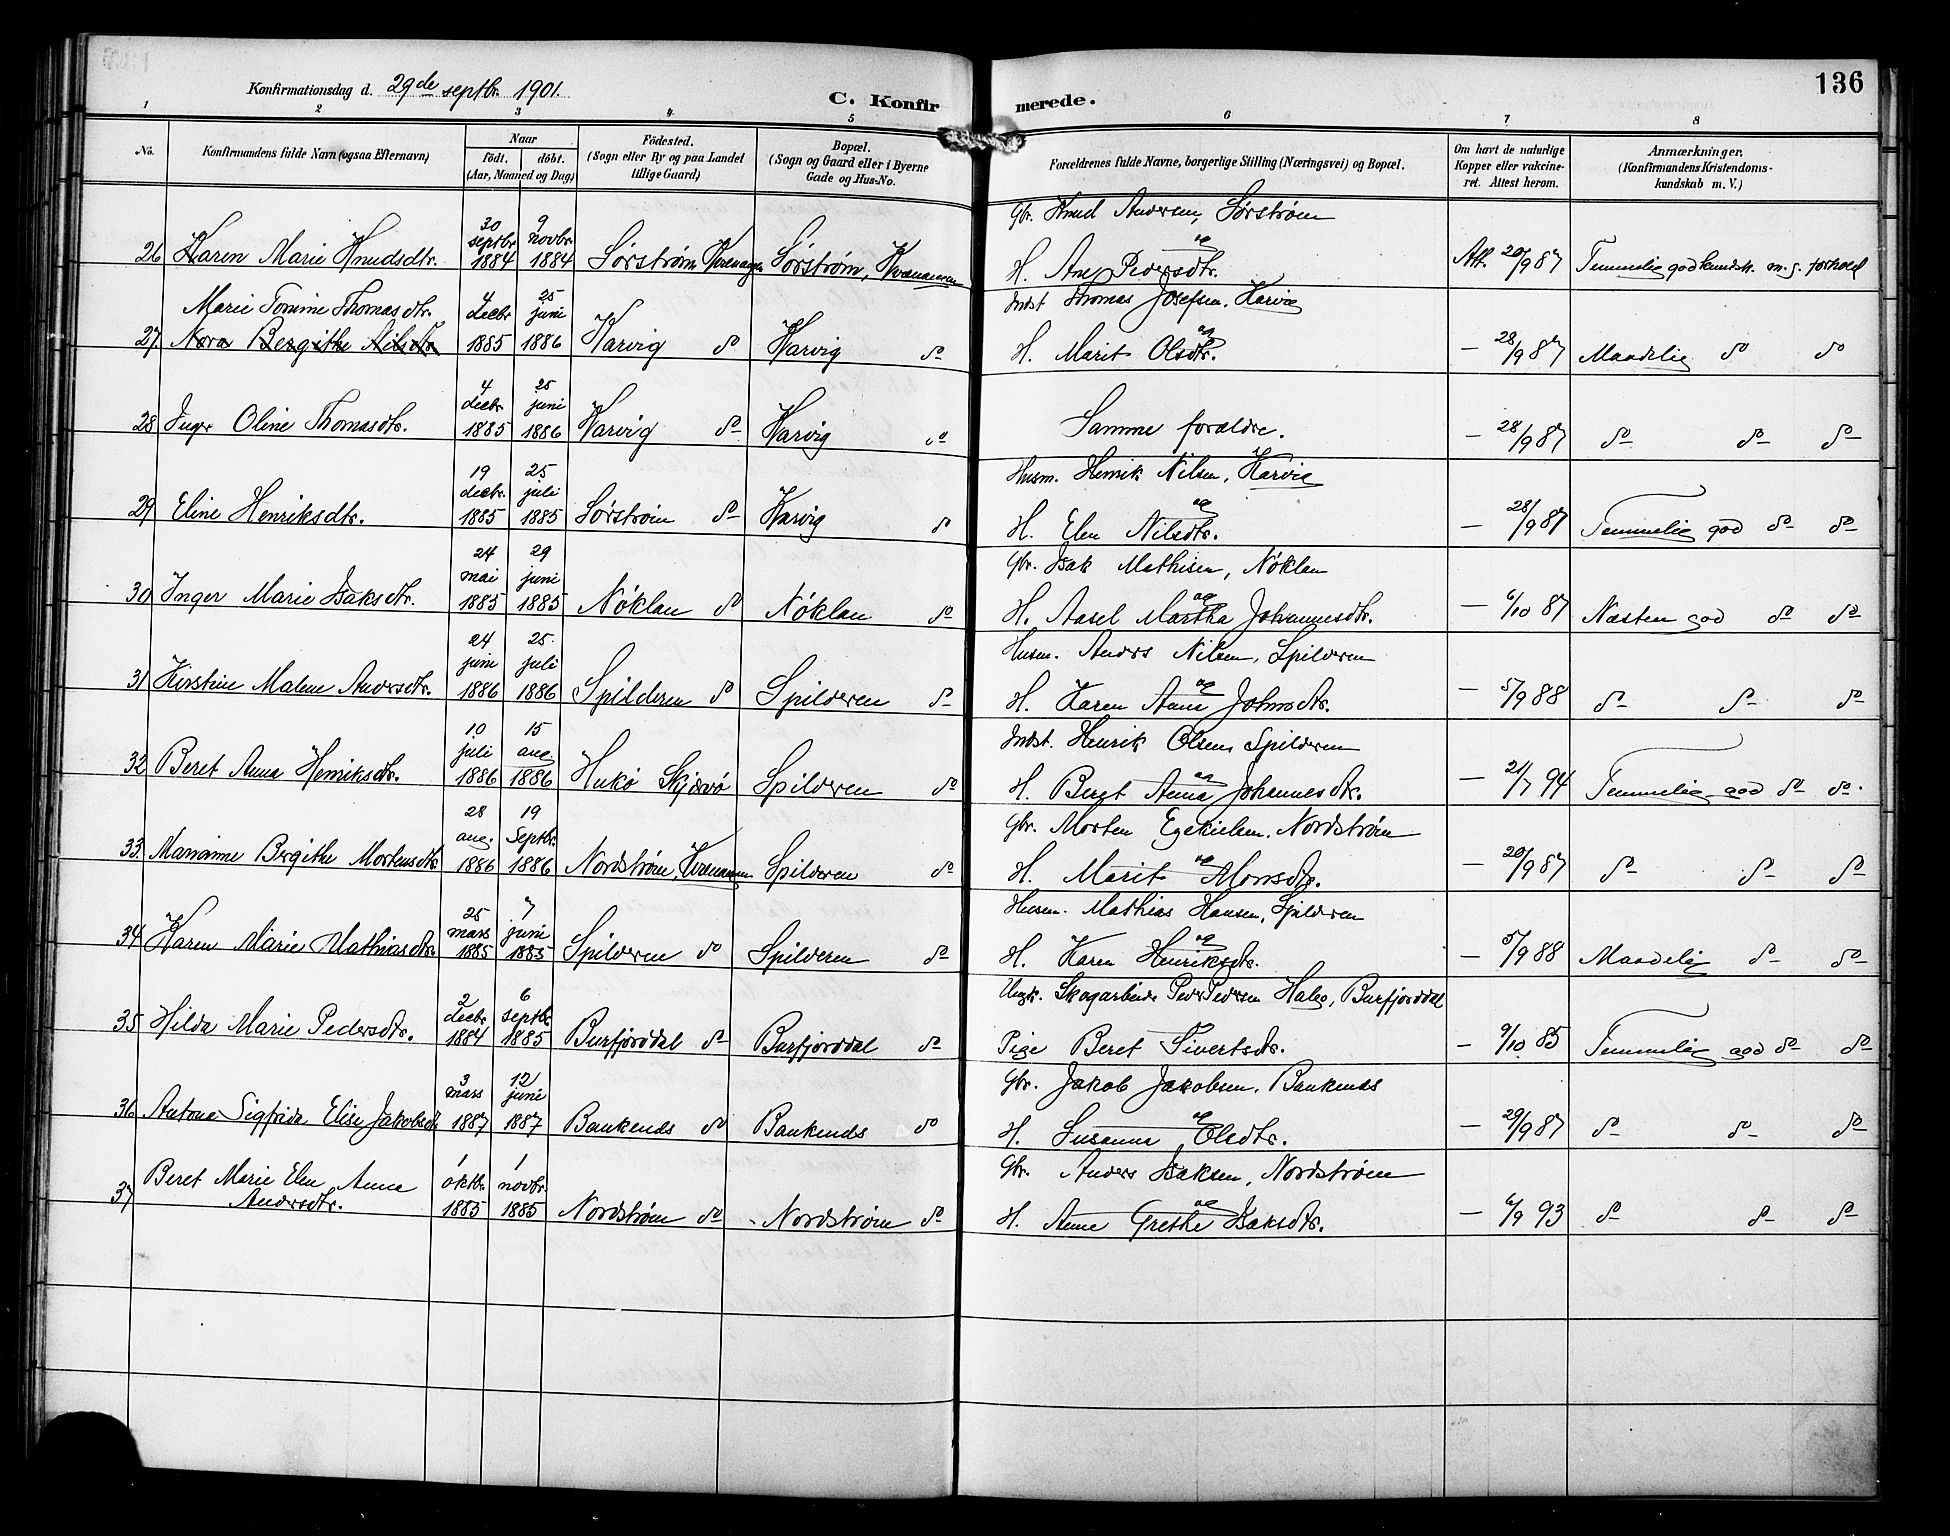 136
Konfirmationsdag d. 29de septbr. 1901.
C. Konfirmerede.
1 2 3 4. 5 6 7 8
No.
Konfirmandens fulde Navn (ogsaa Efternavn)
Naar
født. døbt.
(Aar, Maaned og Dag)
Fødested.
(Sogn eller By og paa Landet
tillige Gaard)
Bopæl.
(Sogn og Gaard eller i Byerne
Gade og Hus-No.
Forældrenes fulde Navne, borgerlige Stilling (Næringsvei) og Bopæl.
Om havt de naturlige
Kopper eller vakcine-
ret. Attest herom.
Anmærkninger.
(Konfirmandens Kristendoms-
kundskab m. V.)
26 Karen Marie Knudsdtr. 30 septbr 1884 9 novbr. 1884 Sørstrøm Kvænangen Sørstrøm, Kvænangen
Gbr. Knud Andersen, Sørstrøm
og
H. Ane Pedersdtr. Att. 20/9 87 Temmelig god kundsk. m. g. forhold
27. Marie Tomine Thomasdtr.
Nora Bergithe Nilsdtr. 4 decbr 1885 25 juni 1886 Karvig do Karvig do
Indst Thomas Josefsen, Karvig
og
H. Marit Olsdtr. — 28/9 87 Maadelig do do
28 Inger Oline Thomasdtr. 4 decbr 1885 25 juni 1886 Karvig do Karvig do
Samme forældre. — 28/9 87 do do do
29 Eline Henriksdtr. 19 decbr. 1885 25 juli 1885 Sørstrøm do Karvig do
Husm. Henrik Nilsen, Karvig
og
H. Elen Nilsdtr. — 28/9 87 Temmelig god do do
30 Inger Marie Isaksdtr. 24 mai 1885 29 juni 1885 Nøklan do Nøklan do
Gbr. Isak Mathisen, Nøklan
og
H. Aasel Martha Johannesdtr. — 6/10 87 Næsten god do do
31 Kirstine Malene Andersdtr. 24 juni 1886 25 juli 1886 Spilderen do Spilderen do
Husm. Anders Nilsen, Spilderen
og
H. Karen Anna Johnsdtr. — 5/9 88 do do do
32 Beret Anna Henriksdtr. 10 juli 1886 15 aug. 1886 Hukø Skjærvø Spilderen do
Indst. Henrik Olsen, Spilderen
og
H. Beret Anna Johannesdtr. — 21/7 94 Temmelig god do do.
33. Marianne Bergithe Mortensdtr 28 aug. 1886 19 Septbr. 1886 Nordstrøm, Kvænangen Spilderen do
Gbr. Morten Ezekielsen, Nordstrøm
og
H. Marit Monsdtr. — 20/9 87 do do do
34 Karen Marie Mathiasdtr. 25 mars 1885 7 juni 1885 Spilderen do Spilderen do
Husm. Mathias Hansen, Spilderen
og
H. Karen Henriksdtr. — 5/9 88 Maadelig do do
35 Hilda Marie Pedersdtr. 2 decbr 1884 6 septbr. 1885 Burfjorddal do Burfjorddal do
Ungk. Skogarbeider Peder Pedersen Haleg, Burfjorddal
Pige Beret Sivertsdtr. — 9/10 85 Temmelig god do do
36 Antona Sigfrida Elise Jakobsdtr 3 mars 1887 12 juni 1887 Baukends do Baukends do
Gbr. Jakob Jakobsen, Baukends
og
H. Susanna Olsdtr. — 29/9 87 do do do
37 Beret Marie Elen Anna
Andersdtr. 1 oktbr. 1885 1 novbr. 1885 Nordstrøm do Nordstrøm do
Gbr. Anders Isaksen, Nordstrøm
og
H. Anne Grethe Isaksdtr. — 6/9 93 do do do